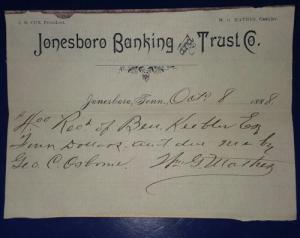 J. D. COX, President. W. G. MATHES, Cashier.
Jonesboro Banking and Trust Co.
Jonesboro, Tenn. Oct 8 1888
$4.00 Recd of Ben. Keebler Esq
Four Dollars amt due me by
Geo. C. Osborne. Wm G Mathes